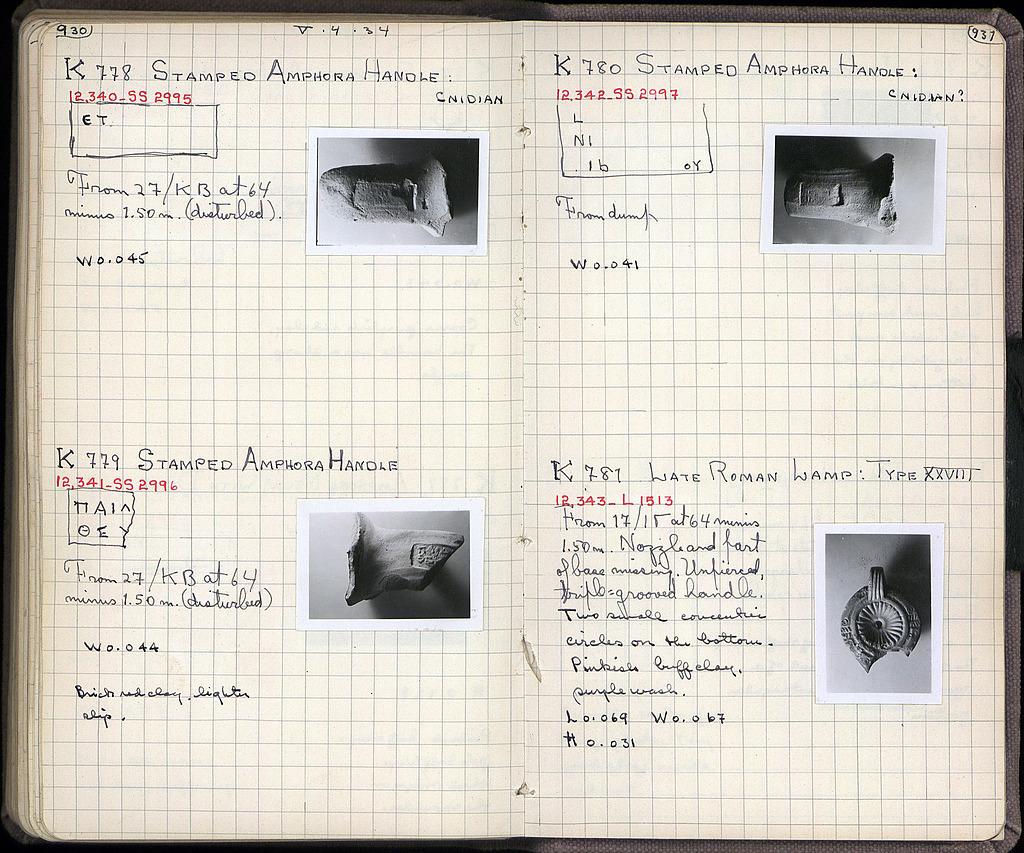 930
V · 4 · 34
K 778 STAMPED AMPHORA HANDLE :
CNIDIAN
12,340-SS 2995
ET
From 27/KB at 64
minus 1.50 m. (disturbed).
W 0.045
K 779 STAMPED AMPHORA HANDLE
12,341-SS 2996
ΠΑΙΛ
ΘΕΥ
From 27/KB at 64
minus 1.50 m. (disturbed)
W 0.044
Brick red clay, lighter
slip.
931
K 780 STAMPED AMPHORA HANDLE :
CNIDIAN?
12,342-SS 2997
L
NI
. Ib OY
From dump
W 0.041
K 781 LATE ROMAN LAMP : TYPE XXVIII
12,343- L 1513
From 17/IΓ at 64 minus
1.50 m. Nozzle and part
of base missing. Unpierced,
triple-grooved handle.
Two small concentric
circles on the bottom.
Pinkish buff clay,
purple wash.
L 0.069 W 0.067
H 0.031